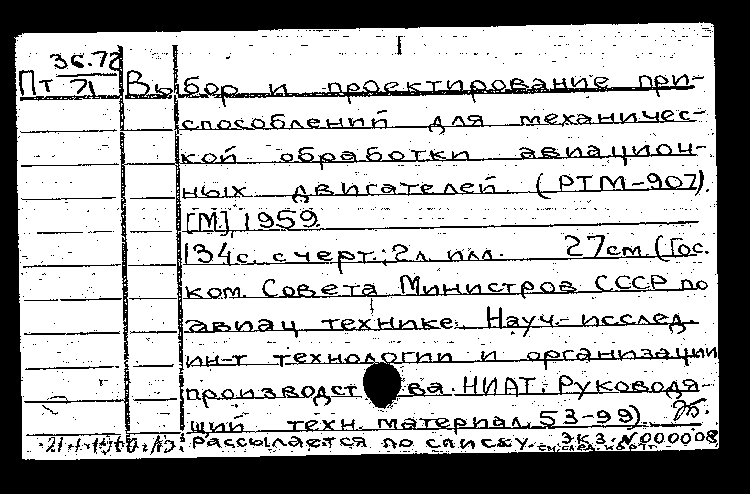 36.72
Пт 71 Выбор и проектирование при-
способлений для механичес-
кой обработки авиацион-
ных двигателей. (РТМ-907).
[М], 1959.
134с. с черт.; 2л. илл. 27см. (Гос.
ком. Совета Министров СССР по
авиац технике. Науч.-исслед.
ин-т технологии и организации
производства. НИАТ. Руководя-
щий техн. материал, 53-99)
Рассылается по списку. Экз. №000008